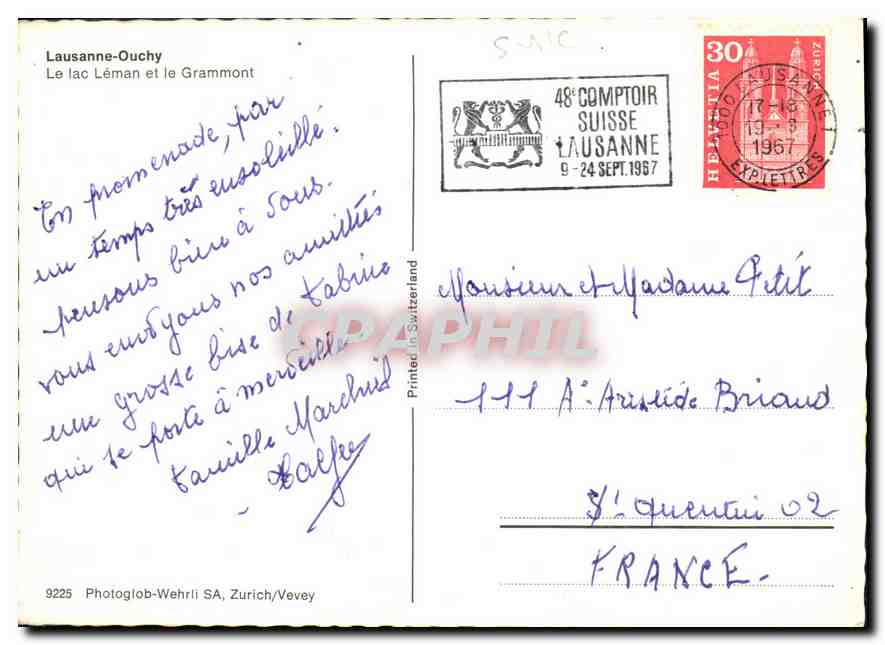 Lausanne-Ouchy
Le lac Léman et le Grammont
En promenade, par
un temps très ensoleillé.
pensons bien à vous.
vous envoyons nos amitiés
une grosse bise de
qui se porte à merveille
famille
S-N'C
48e COMPTOIR
SUISSE
LAUSANNE
9-24 SEPT. 1967
30
HELVETIA
ZÜRICH
1000 LAUSANNE 1
17-18
1967
EXP. LETTRES
Printed in Switzerland
CPAPHIL
Monsieur et Madame Petit
111 Av. Aristide Briand
St Quentin 02
FRANCE.
9225 Photoglob-Wehrli SA, Zurich/Vevey